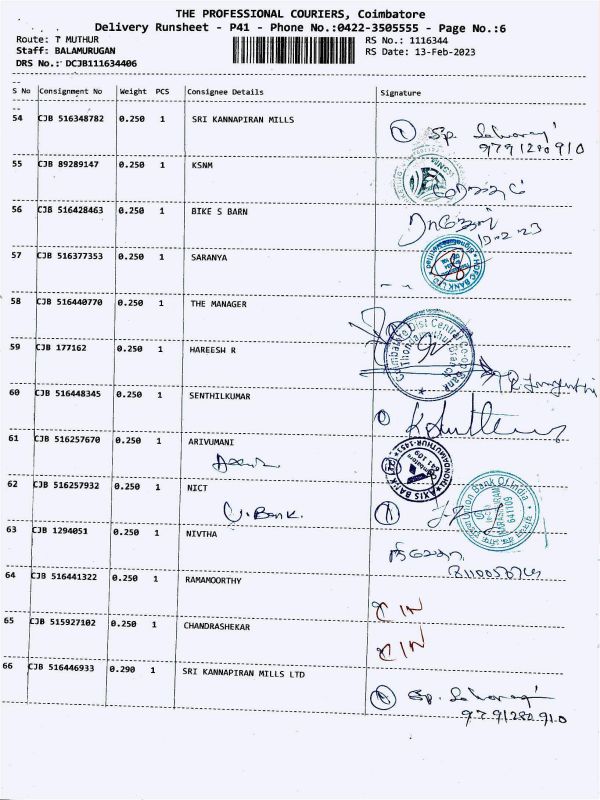 THE PROFESSIONAL COURIERS, Coimbatore
Delivery Runsheet - P41 - Phone No.:0422-3505555 - Page No.:6
Route: T MUTHUR RS No.: 1116344
Staff: BALAMURUGAN RS Date: 13-Feb-2023
DRS No.: DCJB111634406
S No Consignment No Weight PCS Consignee Details Signature
54 CJB 516348782 0.250 1 SRI KANNAPIRAN MILLS
Sp.
9791280910
55 CJB 89289147 0.250 1 KSNM
56 CJB 516428463 0.250 1 BIKE S BARN
57 CJB 516377353 0.250 1 SARANYA
HDFC BANK LTD
58 CJB 516440770 0.250 1 THE MANAGER
Coimbatore Dist Central Co-op Bank
59 CJB 177162 0.250 1 HAREESH R
60 CJB 516448345 0.250 1 SENTHILKUMAR
61 CJB 516257670 0.250 1 ARIVUMANI
AXIS BANK
641 109
62 CJB 516257932 0.250 1 NICT
U. Bank.
Union Bank Of India
641109
63 CJB 1294051 0.250 1 NIVTHA
64 CJB 516441322 0.250 1 RAMAMOORTHY
65 CJB 515927102 0.250 1 CHANDRASHEKAR
66 CJB 516446933 0.290 1 SRI KANNAPIRAN MILLS LTD
Sp.
9791280910